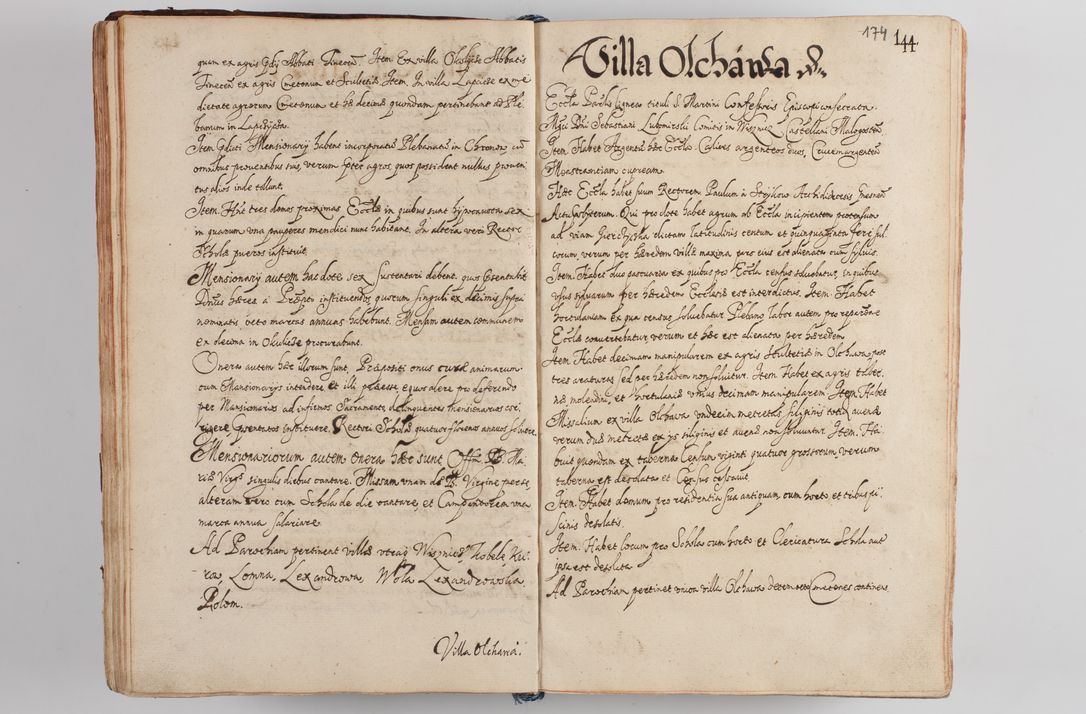 quam ex agris Abbati Tinecen. Item Ex villa Abbatis
Tinecen ex agris Cmetonum et Scultetiæ. Item. In villa Lapcicze ex me
dietate agrorum Cmetonum et hæ decimæ quondam pertinebant ad Ple
banum in
Item Mensionarij habent incorporatum Plebanatum in Chronow cũ
omnibus prouentibus suis, verum pter agros, quos possident nullos prouen
tus alios inde tollunt.
Item. tres domos proximas Eccliæ in quibus sunt sex
in quarum vna pauperes mendici nunc habitant. In altera vero Rector
Scholæ pueros instituit.
Mensionarij autem hac dote sex sustentari debent, quos
hæres a instituendos, quorum singuli ex decimis supra
nominatis, octo marcas annuas habebunt. Mensam autem communem
ex decima in procurabunt.
Onera autem hæc illorum sunt, Præpositi onus curæ animarum
cum Mansionarijs intendere et illi præesse, equos alere pro deferendo
per Mansionarios ad infirmos Sacramento, delinquentes mensionarios cor
rigere, psentatos instituere, Rectori Scholæ quatuor florenos annuos soluere.
Mensionariorum autem Onera hæc sunt, Offm B. Ma
riæ Virgs singulis diebus cantare. Missam vnam de B. Virgine per se
alteram vero cum Schola de die cantare, et Campanatorem vna
marca annua salariare
Ad Parochiam pertinent villæ vtraq Wisznicz, Kobelę,
Lomna, Lexandrowa, Wola Lexandrowska
Polom.
Villa Olchawa.
174 144
Villa Olcháwa
Eccla Parlis lignea tituli S. Martini Confessoris Episcopi consecrata.
Mgci Dni Sebastiani Lubomirski Comitis in Wisznicz Castellani Malogosten.
Item. Habet Argentum hæc Eccla. Calices argenteos duos, Crucem argenteã
Monstrantiam cupream
Hæc Eccla habet suum Rectorem Paulum a Archidiæcesis Gnesneñ
Qui pro dote habet agrum ab Eccla incipientem protensum
ad viam dictam latitudinis centum et quinquaginta fere sul
corum, verum per hæredem villæ maxima pars eius est alienata cum syluis.
Item. Habet duo ex quibus pro Eccla census soluebatur, in quibus
vsus siluarum per hæredem Ecclesiæ est interdictus. Item. Habet
hortulaniam ex qua census soluebatur Plebano labor autem pro reparõne
Eccliæ conuertebatur, verum et hæc est alienata per hæredem
Item. Habet decimam manipularem ex agris Scultetiæ in Olchawa post
tres araturas sed per hæredem non soluitur. Item. Habet ex agris taber
næ molendini, et hortulaniæ vnius decimam manipularem. Item. Habet
Missalium ex villa Olchawa vndecim metretas, siliginis totidẽ auenæ
verum duæ metretæ ex ijs siliginis et auenæ non soluuntur. Item. Ha
buit quondam ex taberna Censum viginti quatuor grossorum, verum
taberna est desolata et Census cessauit.
Item. Habet domum pro residentia sua antiquam cum horto, et tribus pi
scinis desolatis.
Item. Habet locum pro Schola cum horto et Clericatura Schola aut
ipsa est desolata
Ad Parochiam pertinet vnica villa Olchawa decem octo Cmetones continens.